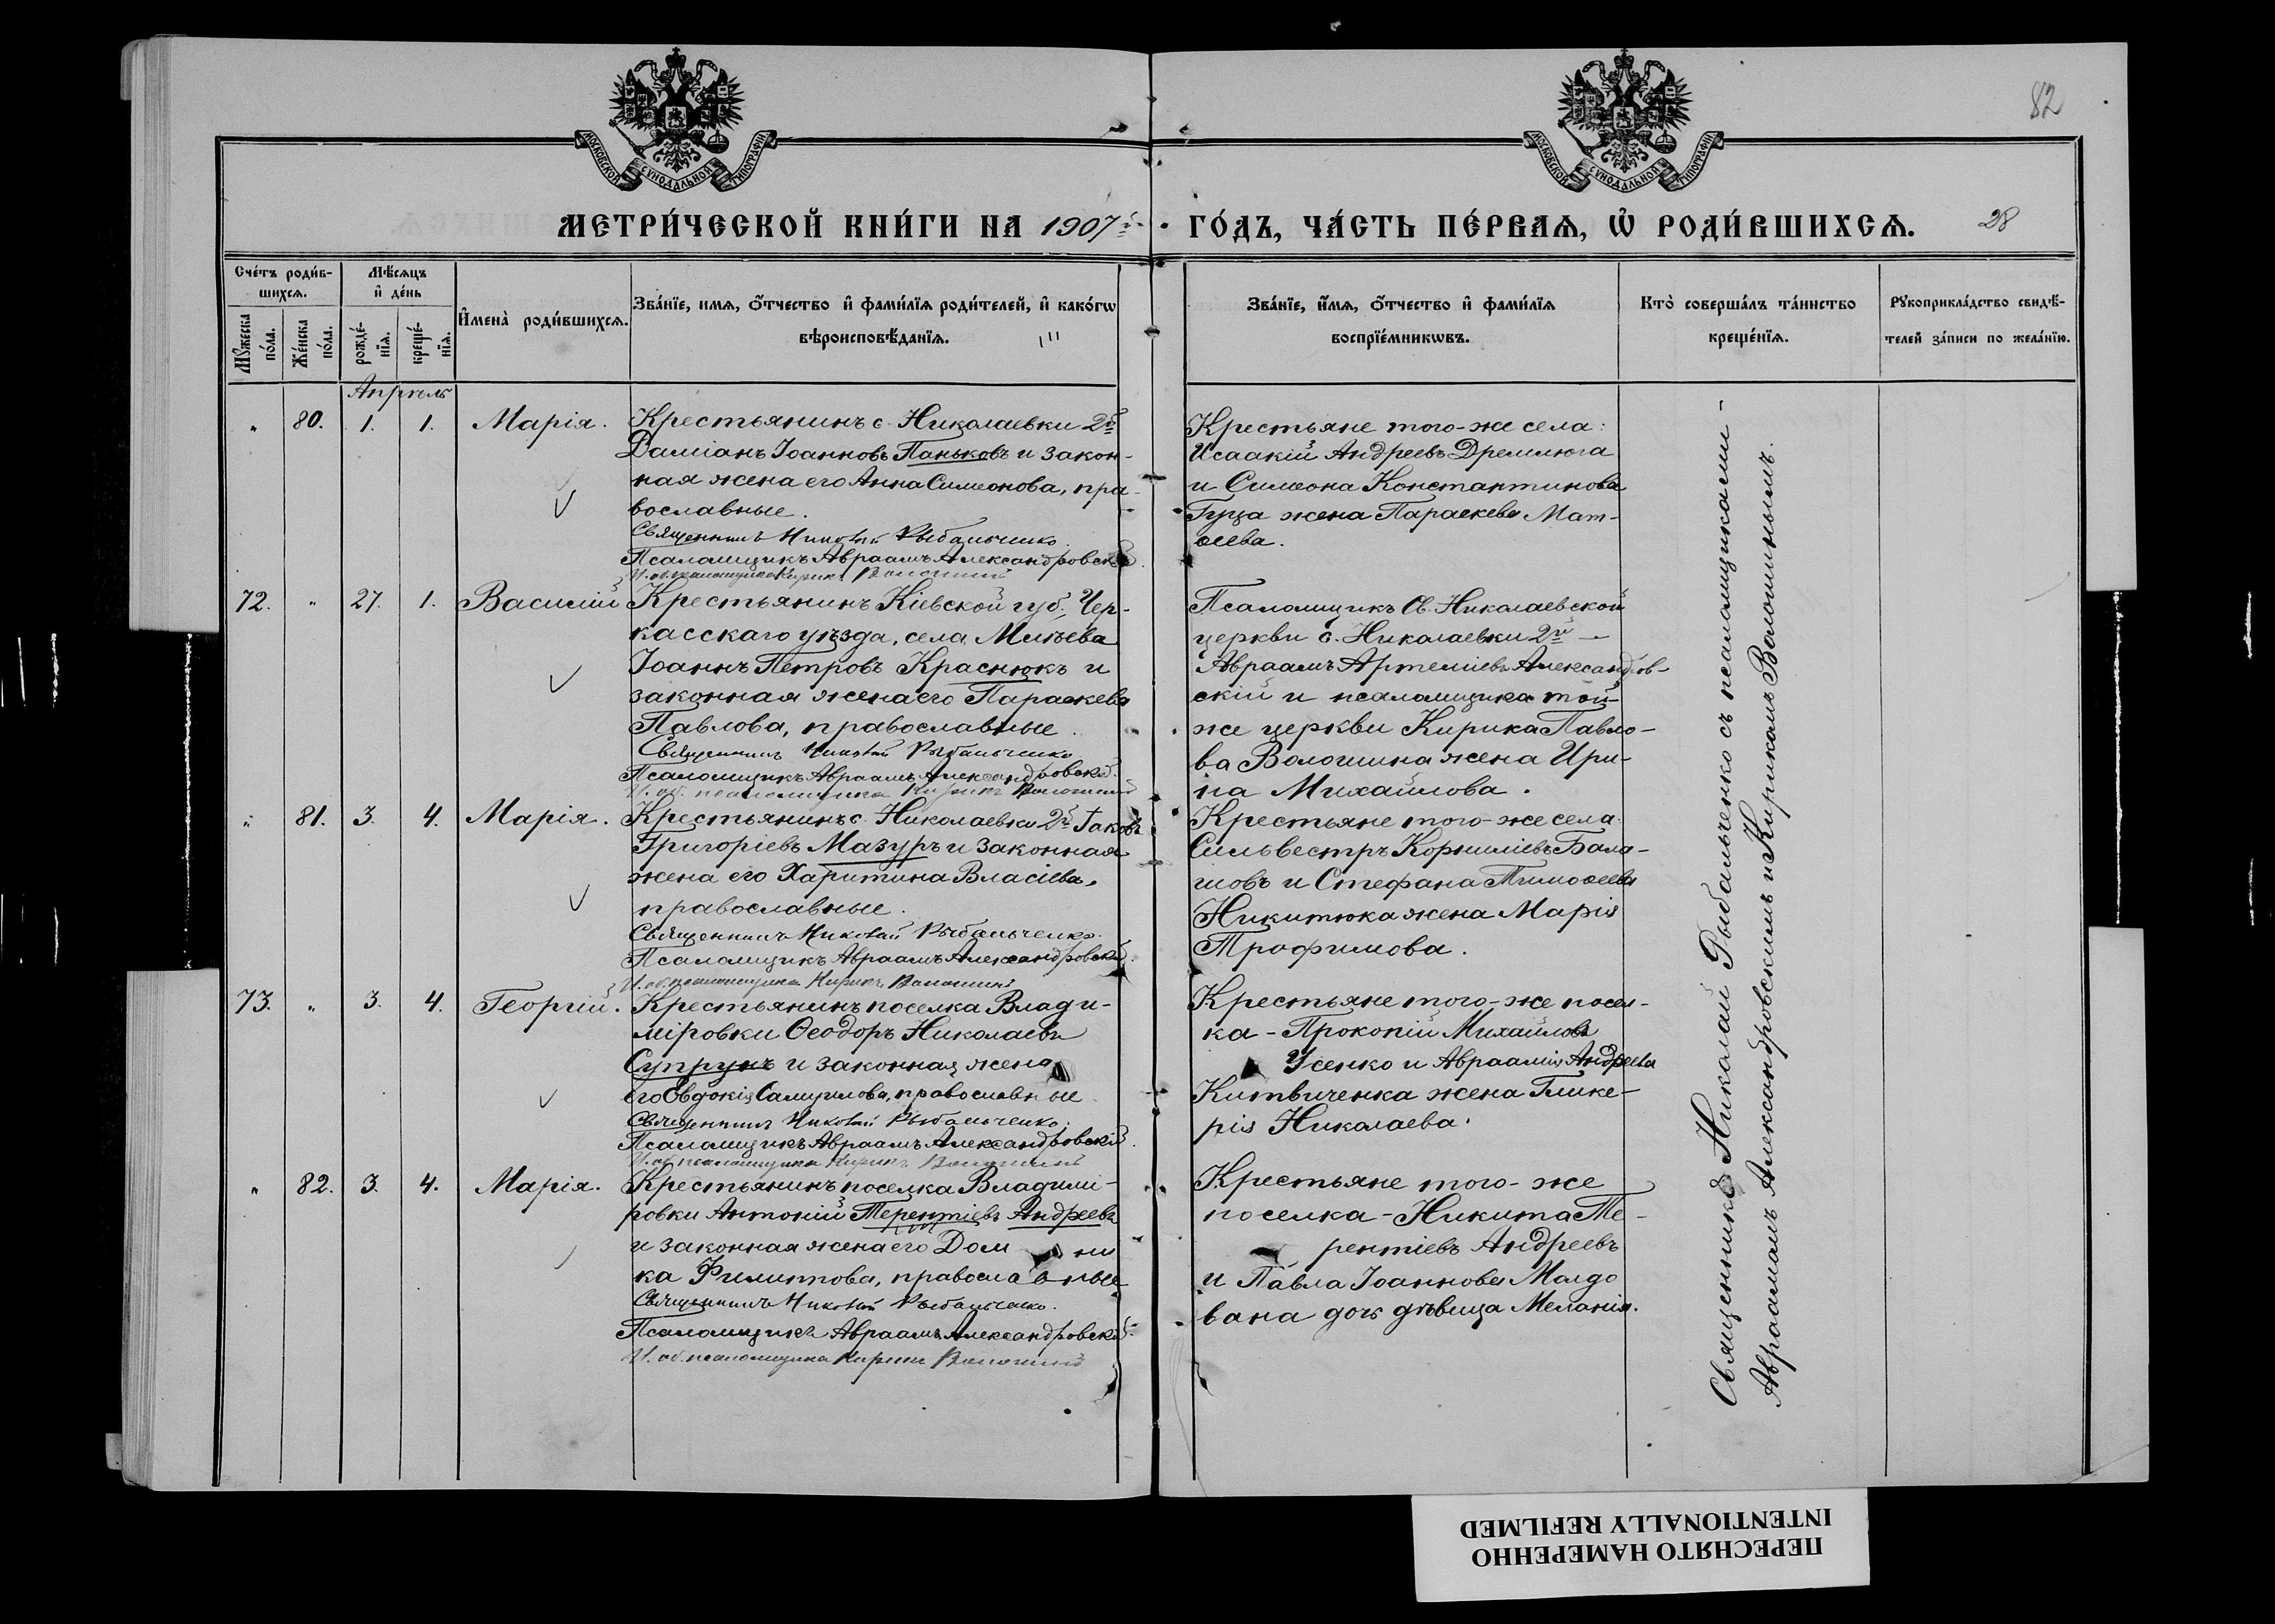 82
МОСКОВСКОЙ СѴНОДАЛЬНОЙ ТИПОГРАФІИ
МОСКОВСКОЙ СѴНОДАЛЬНОЙ ТИПОГРАФІИ
МЕТРИ́ЧЕСКОЙ КНИ́ГИ НА 1907й ГО́ДЪ, ЧА́СТЬ ПЕ́РВАѦ, Ѡ҆ РОДИ́ВШИХСѦ. 28
Сче́тъ роди́в-
шихсѧ.
Мꙋ́жеска по́ла.
Же́нска по́ла.
Мѣ́сѧцъ
и҆ де́нь
рожде́-
нїѧ.
креще́-
нїѧ.
И҆мена̀ роди́вшихсѧ.
Зва́нїе, имѧ, ѻ҆́тчество и҆ фами́лїѧ роди́телей, и҆ како́гѡ
вѣроисповѣ́данїѧ.
Зва́нїе, и҆́мѧ, ѻ҆́тчество и҆ фами́лїѧ
воспрїе́мникѡвъ.
Кто̀ соверша́лъ та́инство
креще́нїѧ.
Рꙋкоприкла́дство свидѣ́-
телей за́писи по жела́нїю.
Апрѣль
" 80. 1. 1. Марія.
Крестьянинъ с. Николаевки 2й
Даміанъ Іоанновъ Паньковъ и закон-
ная жена его Анна Симеонова, пра-
вославные.
Священникъ Николай Рыбальченко.
Псаломщикъ Авраамъ Александровскій.
И. об. псаломщика Кирикъ Волошинъ
Крестьяне того-же села:
Исаакій Андреевъ Дремлюга
и Симеона Константинова
Гуца жена Параскева Мат-
ѳеева.
72. " 27. 1. Василій
Крестьянинъ Кіевской губ., Чер-
касскаго уѣзда, села Млѣева
Іоаннъ Петровъ Краснюкъ и
законная жена его Параскева
Павлова, православные.
Священникъ Николай Рыбальченко
Псаломщикъ Авраамъ Александровскій.
И. об. псаломщика Кирикъ Волошинъ
Псаломщикъ Св. Николаевской
церкви с. Николаевки 2й —
Авраамъ Артеміевъ Александров-
скій и псаломщика той-
же церкви Кирика Павло-
ва Волошина жена Ири-
на Михайлова.
" 81. 3. 4. Марія.
Крестьянинъ с. Николаевки 2й Іаковъ
Григоріевъ Мазуръ и законная
жена его Харитина Власіева,
православные.
Священникъ Николай Рыбальченко.
Псаломщикъ Авраамъ Александровскій.
И. об. псаломщика Кирикъ Волошинъ
Крестьяне того-же села
Сильвестръ Корниліевъ Бала-
шовъ и Стефана Тимоѳеева
Никитюка жена Марія
Трофимова.
73. " 3. 4. Георгій.
Крестьянинъ поселка Влади-
міровки Ѳеодоръ Николаевъ
Супрунъ и законная жена
его Евдокія Самуилова, православные.
Священникъ Николай Рыбальченко.
Псаломщикъ Авраамъ Александровскій.
И. об. псаломщика Кирикъ Волошинъ
Крестьяне того-же посел-
ка - Прокопій Михайловъ
Усенко и Авраамія Андреева
Китвиченка жена Глике-
рія Николаева.
" 82. 3. 4. Марія.
Крестьянинъ поселка Владимі-
ровки Антоній Терентіевъ Андреевъ
и законная жена его Домни
ка Филиппова, православные
Священникъ Николай Рыбальченко.
Псаломщикъ Авраамъ Александровскій.
И. об. псаломщика Кирикъ Волошинъ
Крестьяне того-же
поселка - Никита Те-
рентіевъ Андреевъ
и Павла Іоаннова Молдо
вана дочь дѣвица Меланія.
Священникъ Николай Рыбальченко съ псаломщиками -
Авраамомъ Александровскимъ и Кирикомъ Волошинымъ.
ПЕРЕСНЯТО НАМЕРЕННО
INTENTIONALLY REFILMED